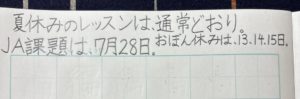 夏休みのレッスンは、通常どおり。
JA課題は、7月28日。おぼん休みは、13.14.15日。